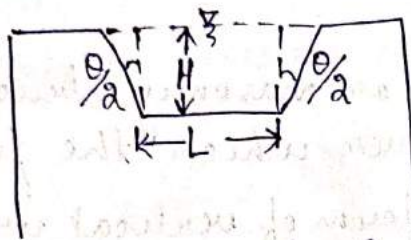 θ/2 H θ/2
L